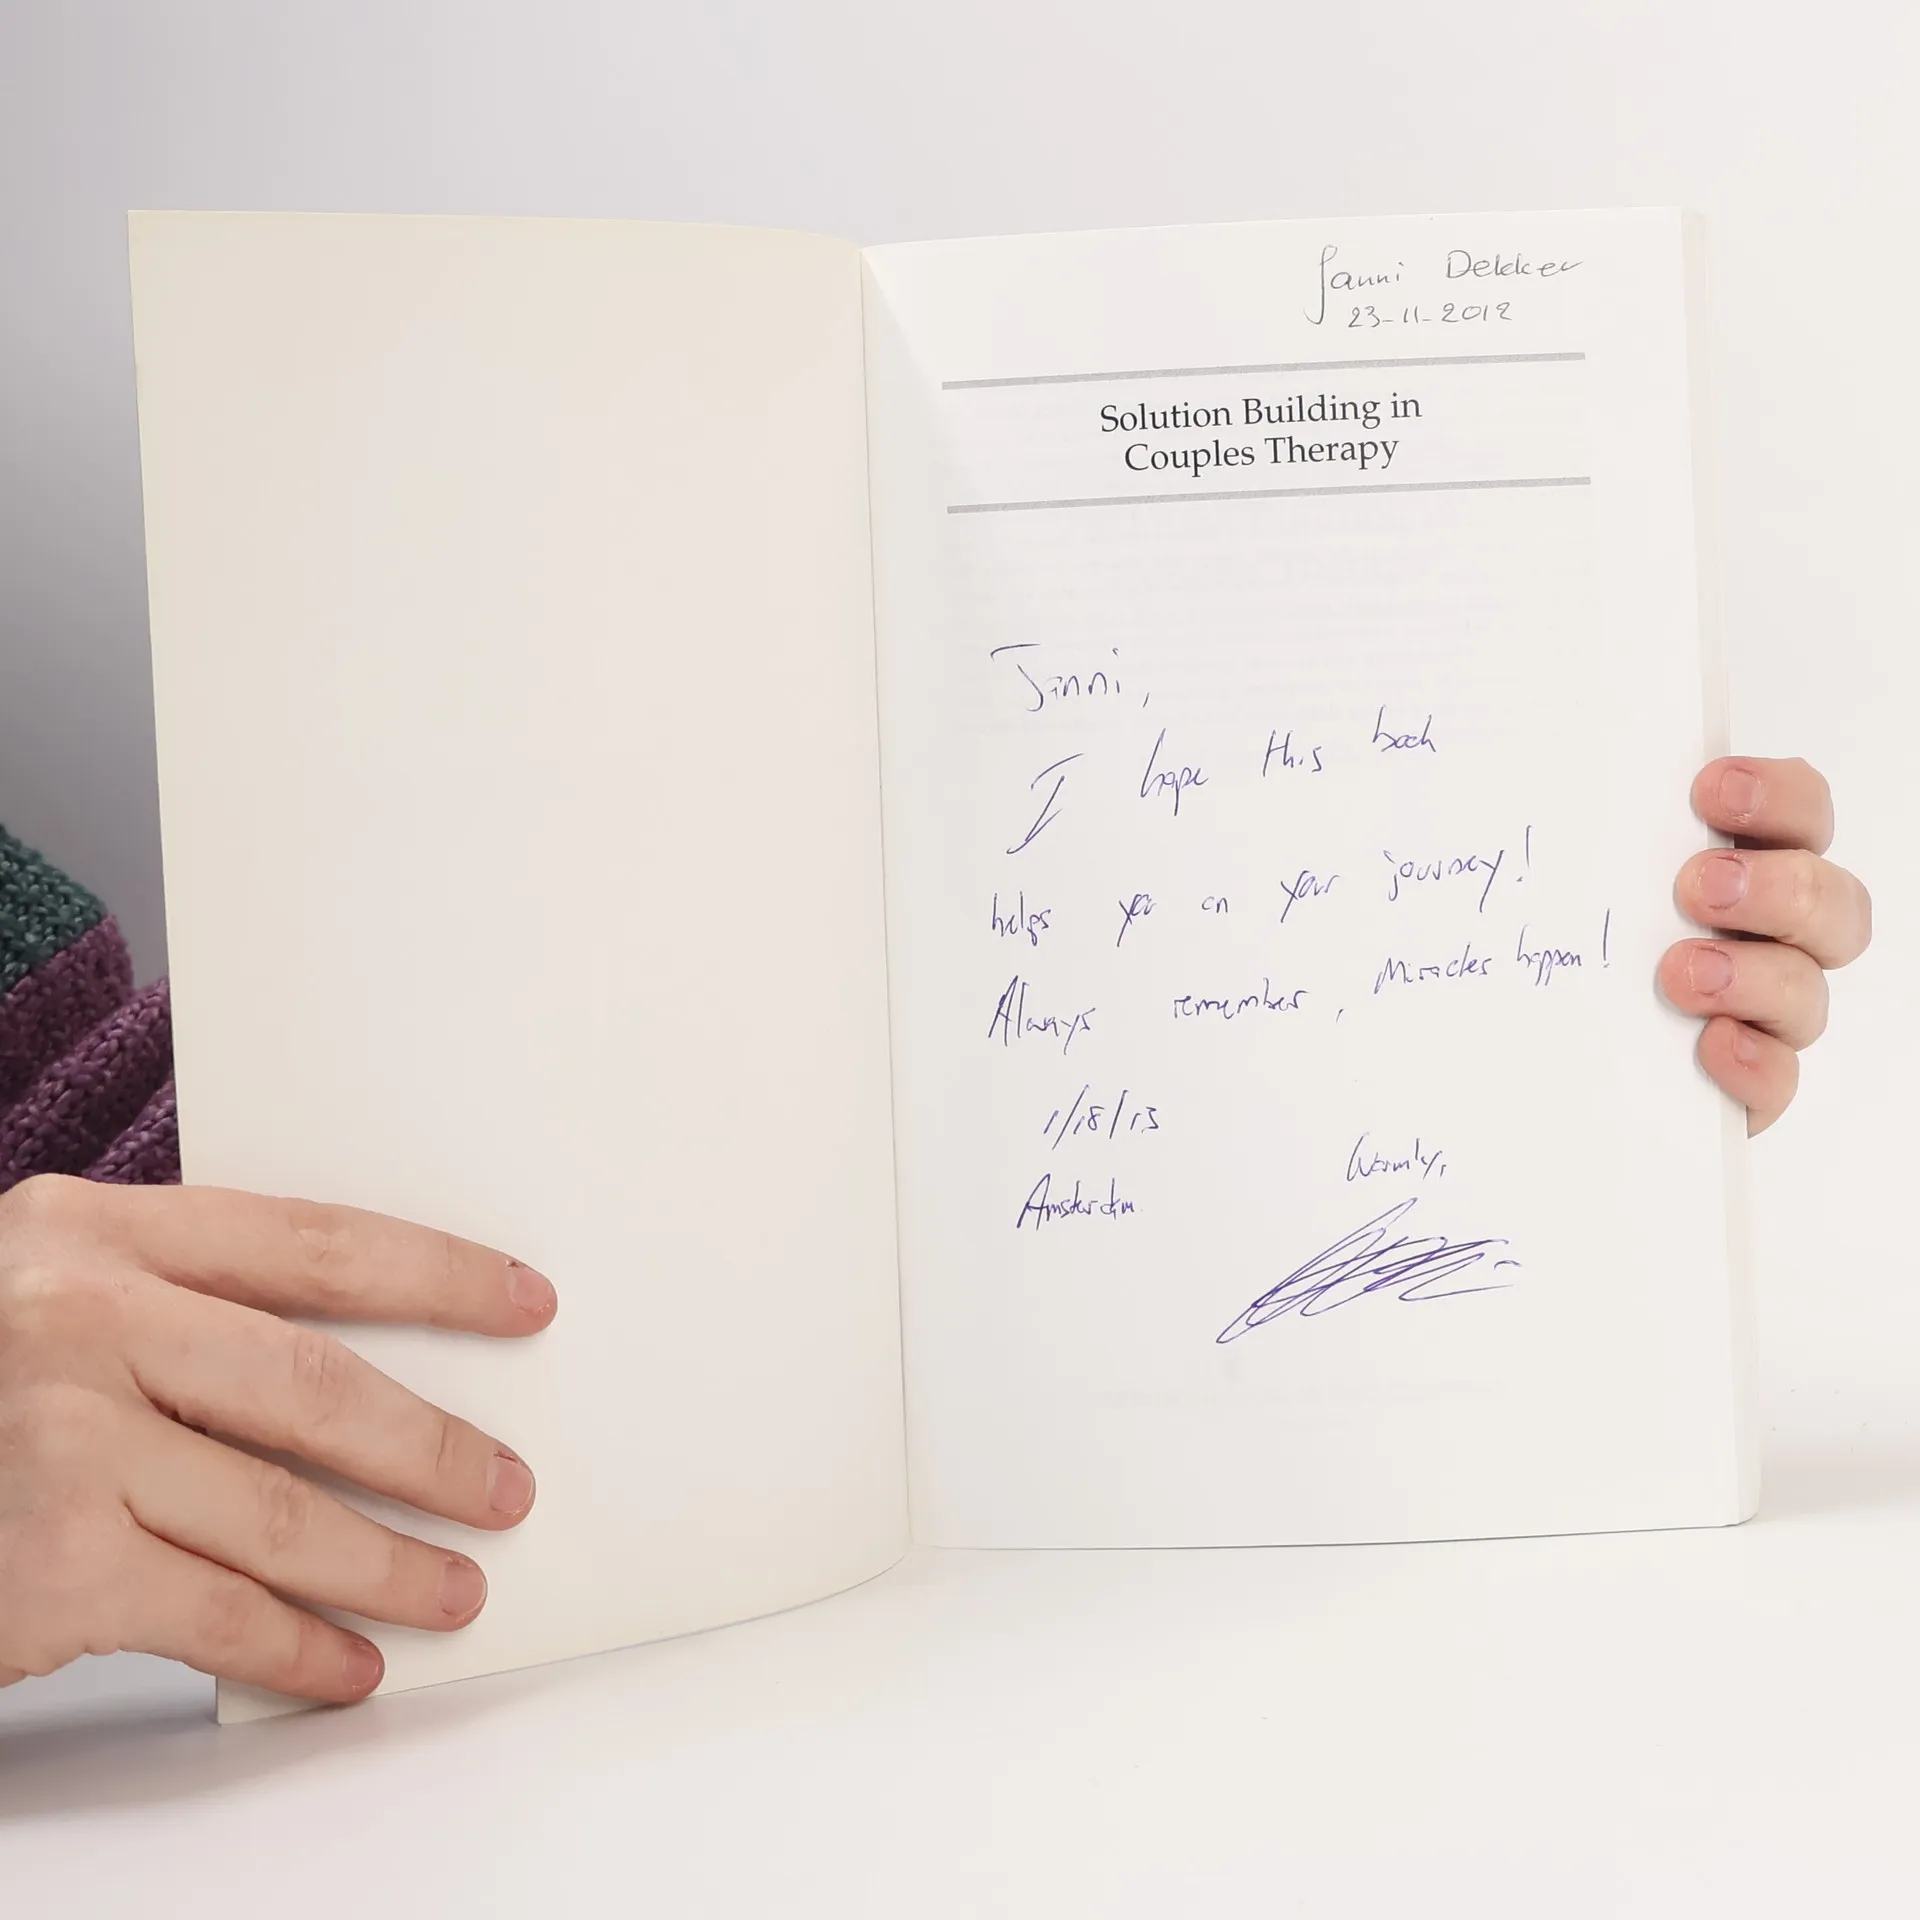 Janni Dekker
23-11-2012
Solution Building in
Couples Therapy
Janni,
I hope this book
helps you on your journey!
Always remember, Miracles happen!
1/18/13
Warmly,
Amsterdam